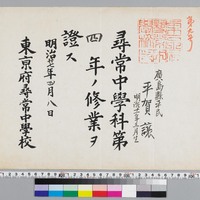 廣島縣士族
平賀譲
明治十一年三月生
尋常中學科第
四年ノ修業ヲ
證ス
明治廿八年四月八日
東京府尋常中學校